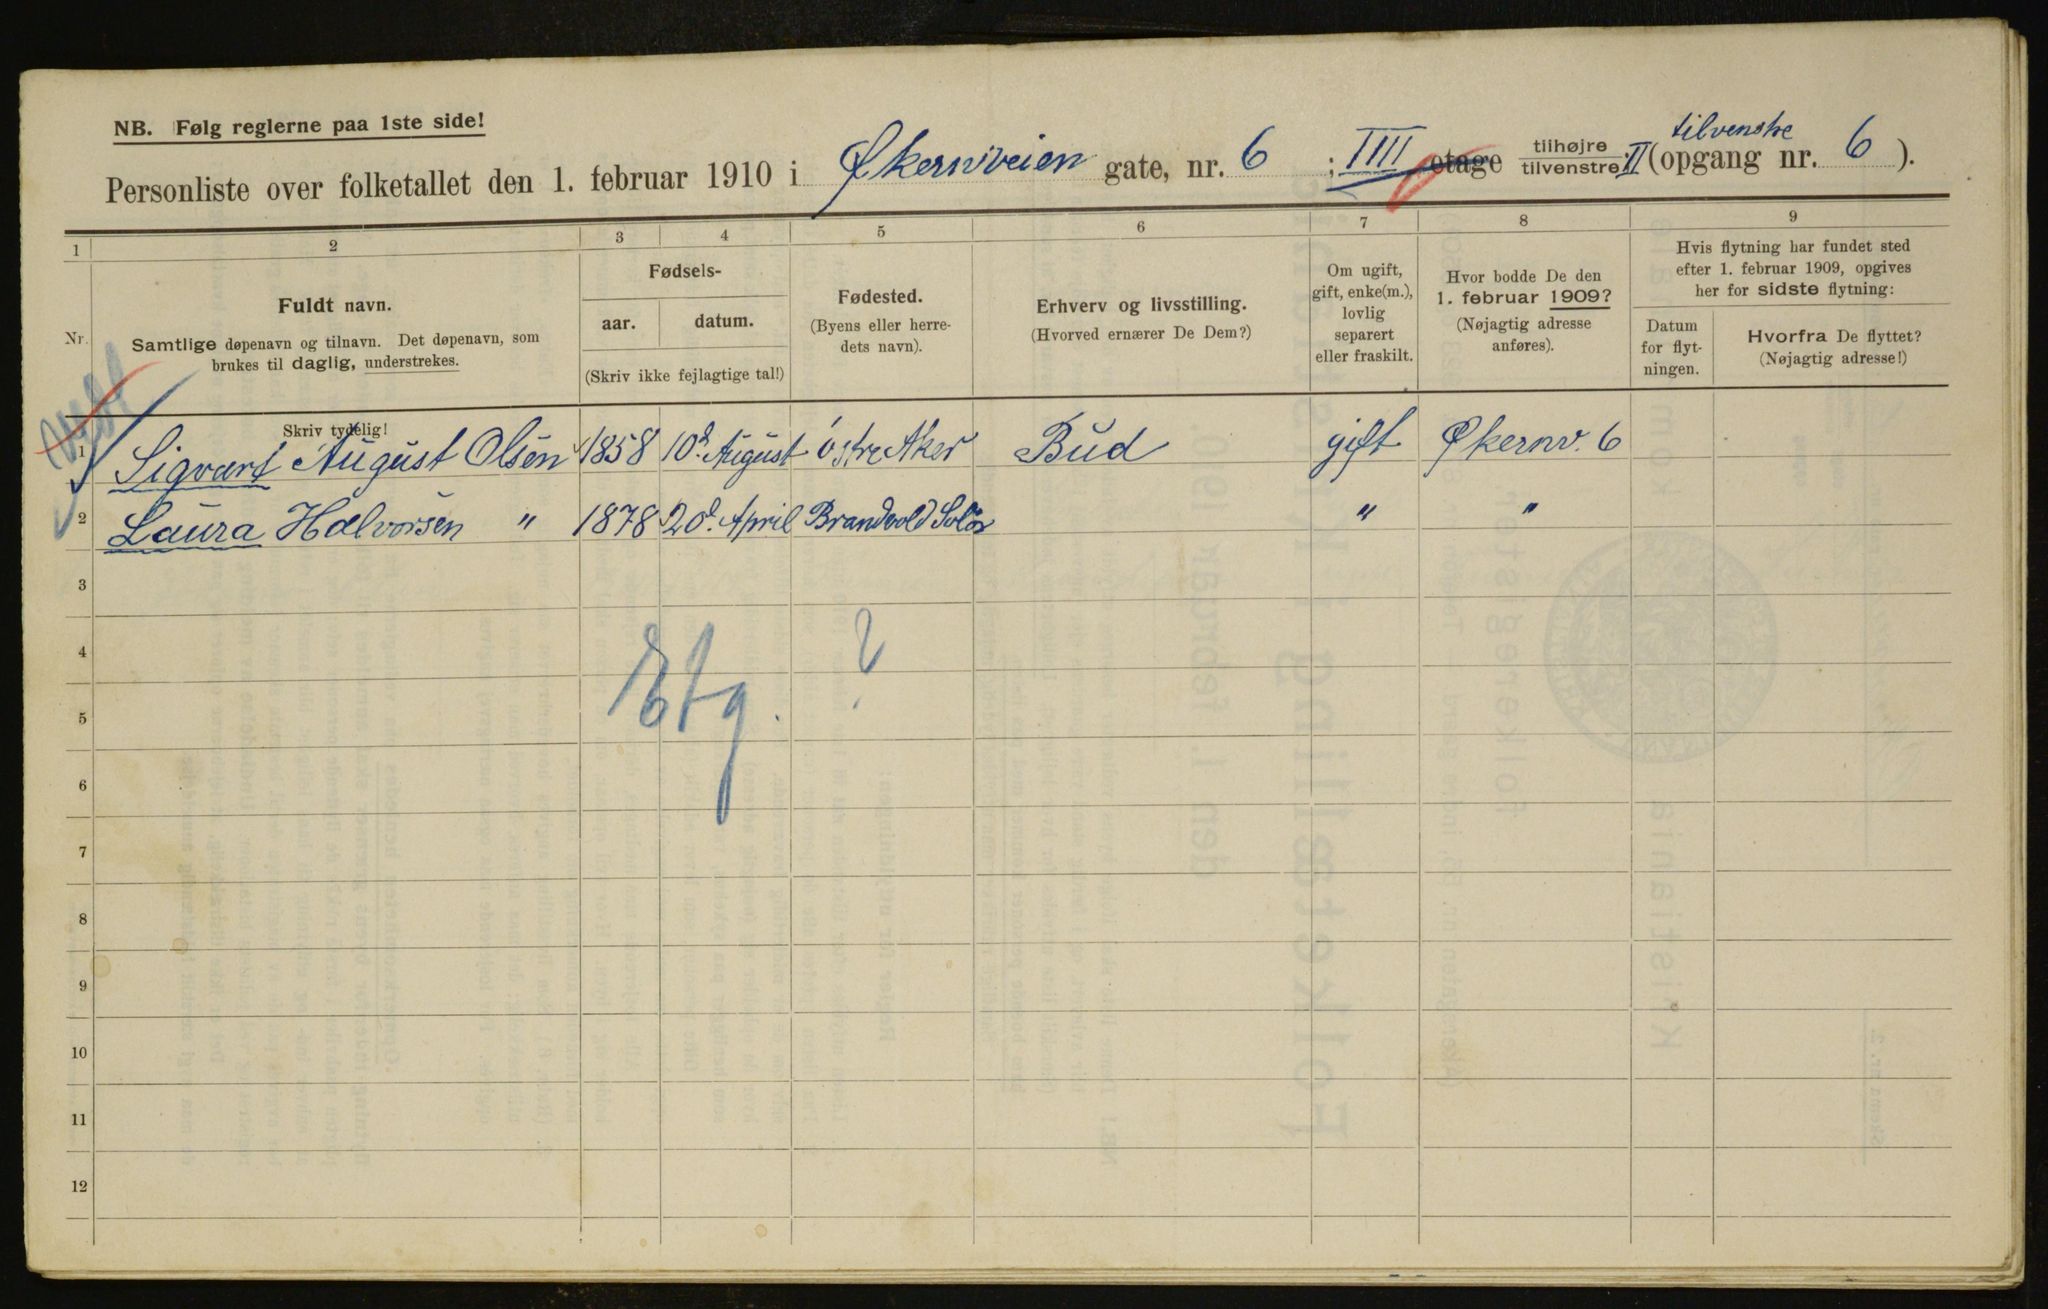 NB. Følg reglerne paa 1ste side!
Personliste over folketallet den 1. februar 1910 i Økernveien gate, nr. 6 ; IIII etage tilhøjre tilvenstre II tilvenstre (opgang nr. 6 ).
1 2 3 4 5 6 7 8 9
Nr.
Fuldt navn.
Samtlige døpenavn og tilnavn. Det døpenavn, som
brukes til daglig, understrekes.
Fødsels-
aar. datum.
(Skriv ikke fejlagtige tal!)
Fødested.
(Byens eller herre-
dets navn).
Erhverv og livsstilling.
(Hvorved ernærer De Dem?)
Om ugift,
gift, enke(m.),
lovlig
separert
eller fraskilt.
Hvor bodde De den
1. februar 1909?
(Nøjagtig adresse
anføres).
Hvis flytning har fundet sted
efter 1. februar 1909, opgives
her for sidste flytning:
Datum
for flyt-
ningen.
Hvorfra De flyttet?
(Nøjagtig adresse!)
Skriv tydelig!
1 Sigvart August Olsen 1858 10d August østre Aker Bud gift Økernv. 6
2 Laura Halvorsen " 1878 20d. April Brandvold Solør " "
3
4
Etg. ?
5
6
7
8
9
10
11
12